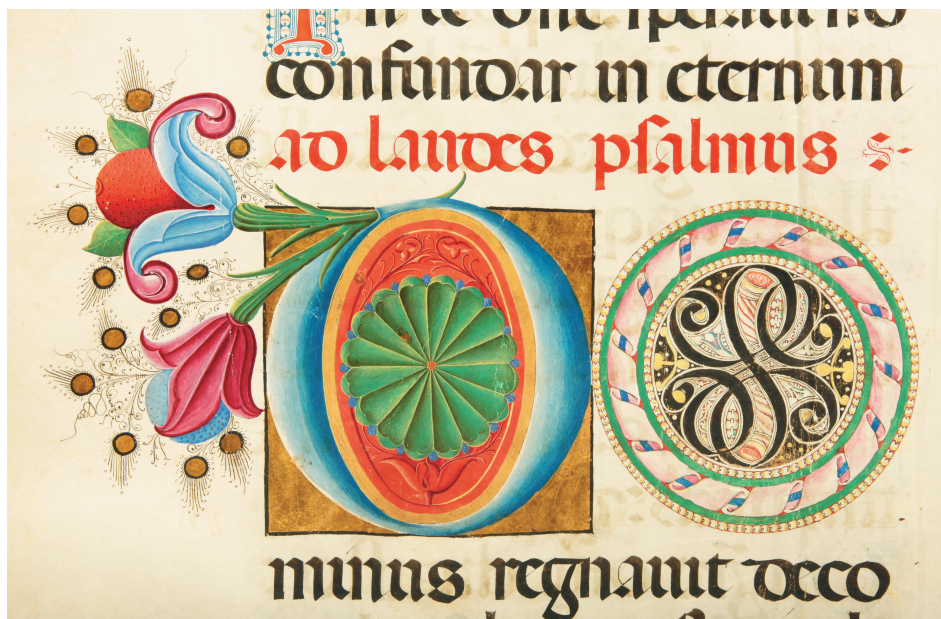 In te dne speraui no
confundar in eternum
ad laudes psalmus
DO
minus regnauit deco